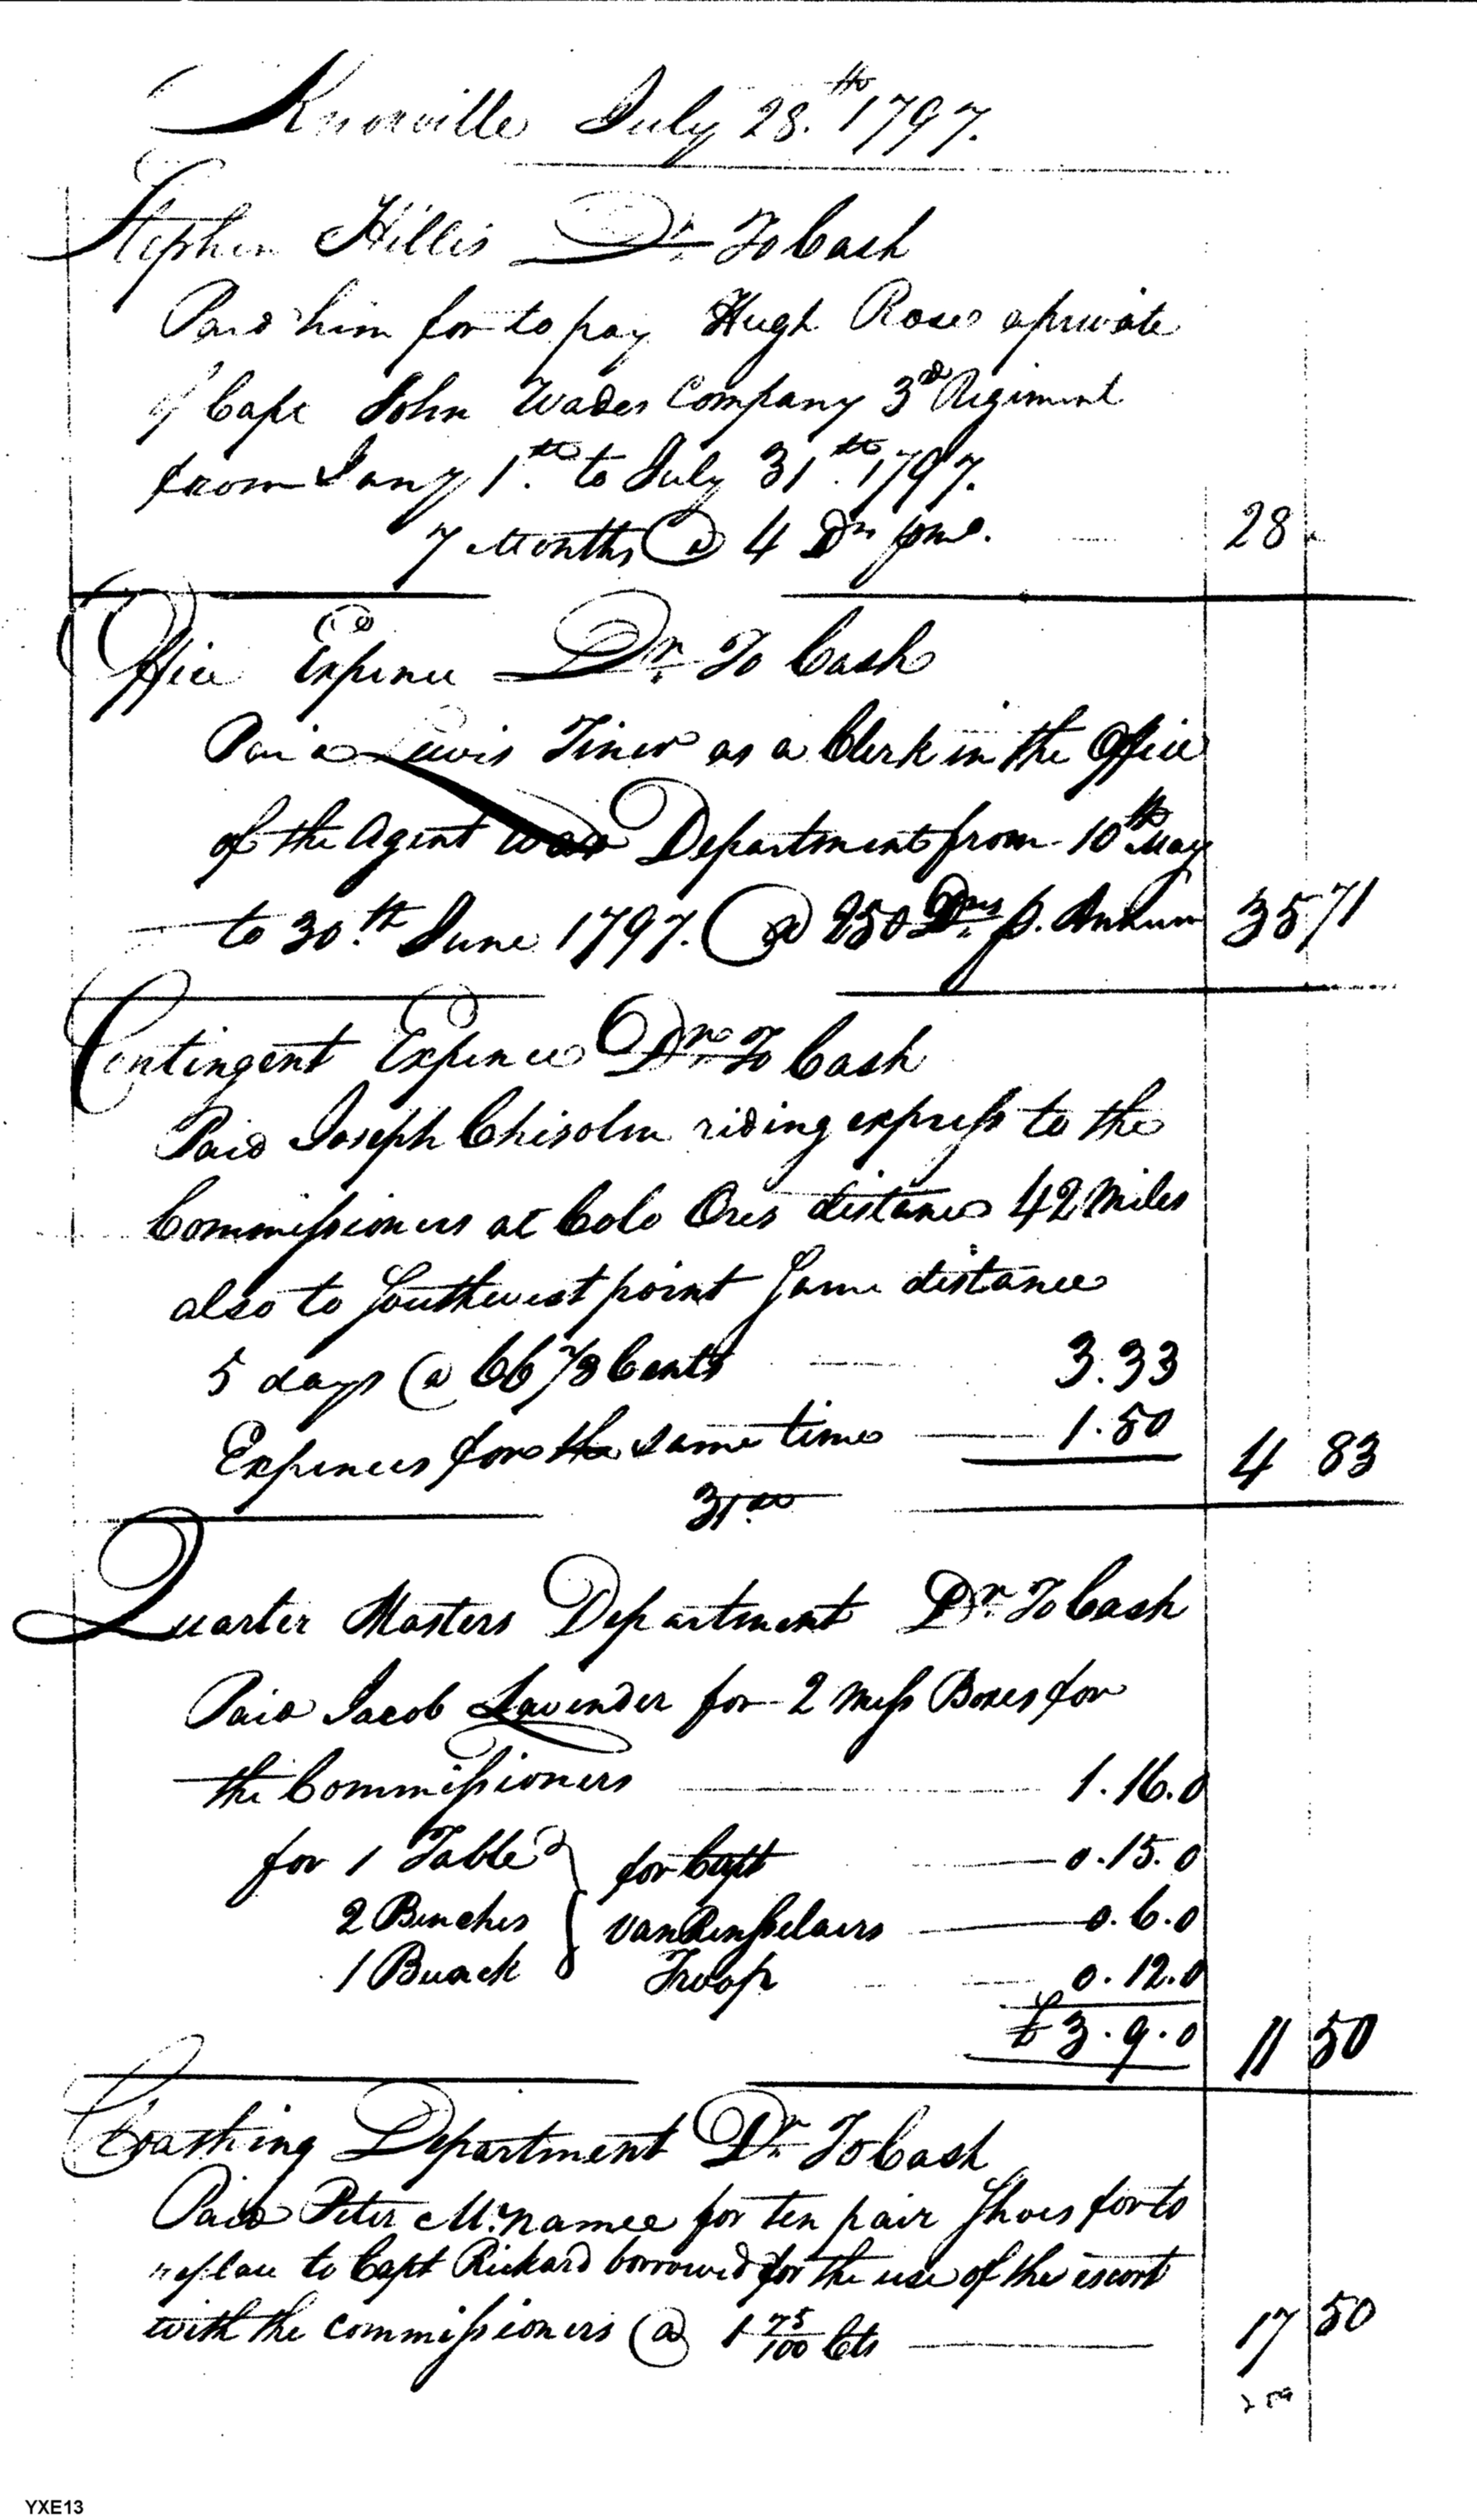 Knoxville July 28.th 1797.
Stephen Hillis Dr. To Cash
Paid him for to pay Hugh Rose a private
of Capt John Wades Company 3rd Regiment
from Jany 1.th to July 31.th 1797.
7 Months @ 4 Drs pme. 28
Office Expence Dr. To Cash
Paid Lewis Tiner as a Clerk in the Office
of the Agent War Department from 10th May
to 30.th June 1797. @ 250 Drs p. Annum 35 71
Contingent Expences Dr. To Cash
Paid Joseph Chisolm riding express to the
Commissioners at Colo Ores distance 42 Miles
also to Southwest point Same distance
5 days @ 66 2/3 Cents 3.33
Expences for the same time 1.50 4 83
31.st
Quarter Masters Department Dr. To Cash
Paid Jacob Lavender for 2 Mess Boxes for
the Commissioners 1.16.0
for 1 Table for Capt 0.15.0
2 Benches VanRensselaers 0.6.0
1 Buack Troop 0.12.0
£ 3.9.0 11 50
Cloathing Department Dr. To Cash
Paid Peter McNamee for ten pair Shoes for to
replace to Capt Rickard borrowed for the use of the escort
with the commissioners @ 1 75/100 Cts 17 50
YXE13